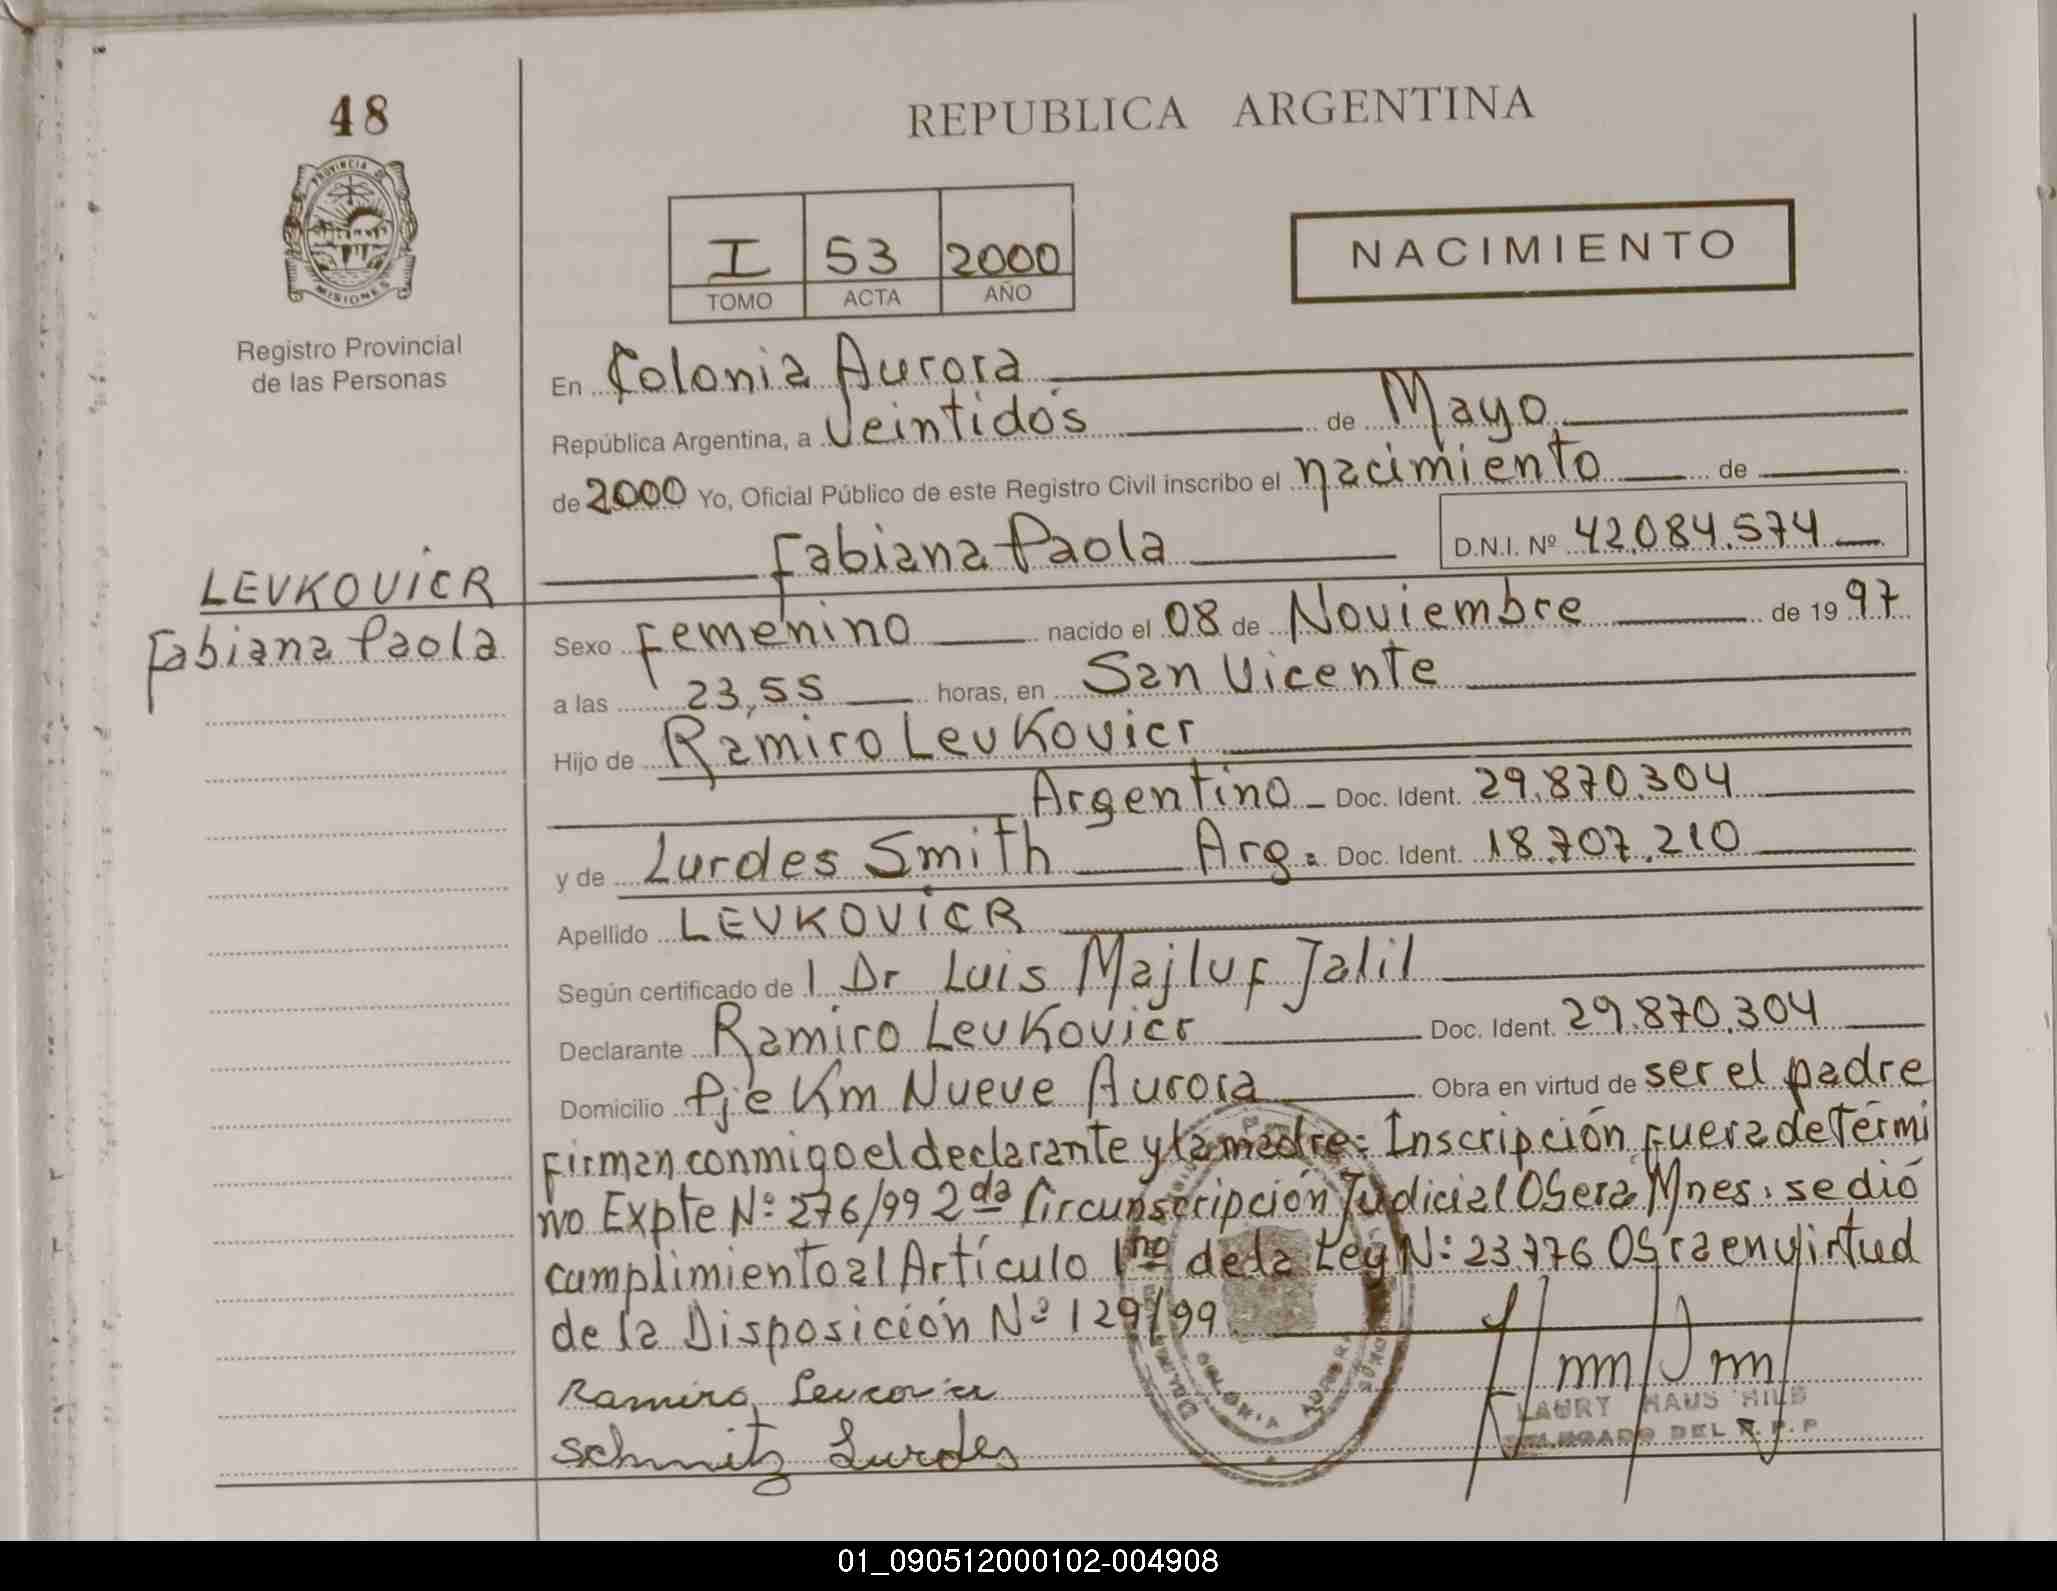 48
PROVINCIA DE
MISIONES
Registro Provincial
de las Personas
REPUBLICA ARGENTINA
I 53 2000
TOMO ACTA AÑO
NACIMIENTO
En Colonia Aurora
República Argentina, a Veintidós de Mayo
de 2000 Yo, Oficial Público de este Registro Civil inscribo el nacimiento de
Fabiana Paola D.N.I. Nº 42.084.574
LEVKOVICR
Fabiana Paola
Sexo Femenino nacido el 08 de Noviembre de 1997
a las 23,55 horas, en San Vicente
Hijo de Ramiro Levkovicr
Argentino Doc. Ident. 29.870.304
y de Lurdes Smith Arg. Doc. Ident. 18.707.210
Apellido LEVKOVICR
Según certificado de l Dr Luis Majluf Jalil
Declarante Ramiro Levkovicr Doc. Ident. 29.870.304
Domicilio Pje Km Nueve Aurora Obra en virtud de ser el padre
Firman conmigo el declarante y la madre= Inscripción fuera de Térmi
no Expte N: 276/99 2da Circunscripción Judicial Oberá Mnes. se dió
cumplimiento al Artículo 1ro de la Ley N: 23.776 Obra en virtud
de la Disposición Nº 129/99
Ramiro Levcovicr
Schmitz Lurdes
COLONIA AURORA
LAURY HAUS HILD
DELEGADO DEL R.P.P
01_090512000102-004908